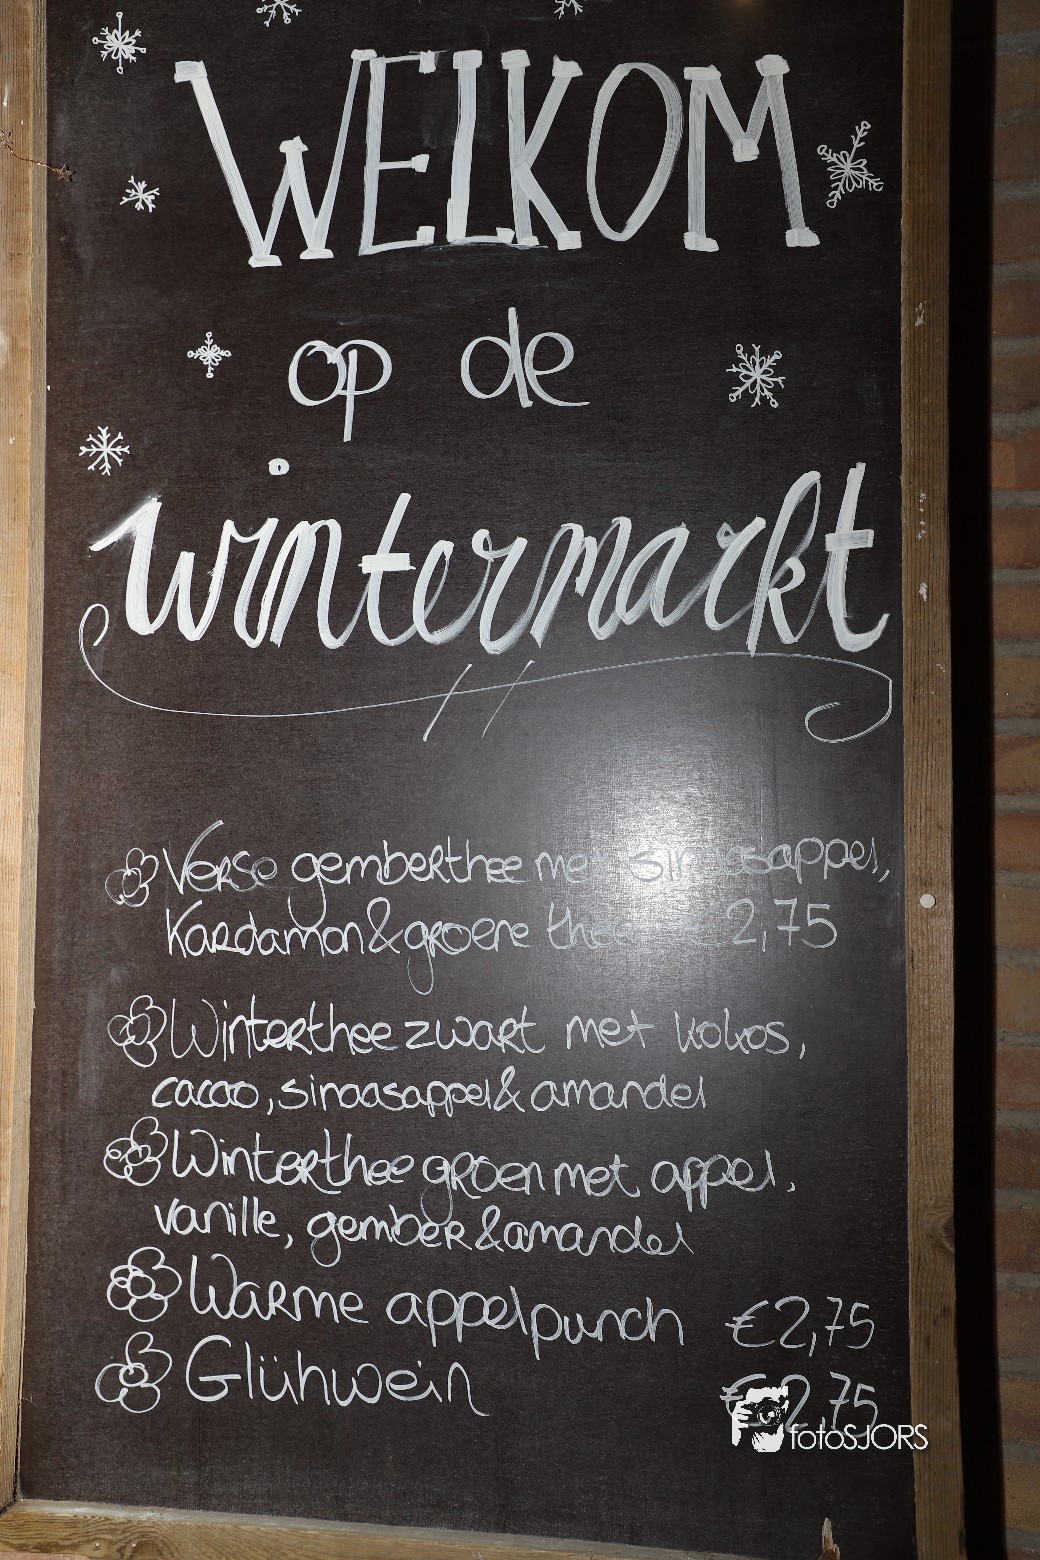 WELKOM
op de
wintermarkt
Verse gemberthee met sinaasappel,
Kardamon & groene thee € 2,75
Winterthee zwart met kokos,
cacao, sinaasappel & amandel
Winterthee groen met appel,
vanille, gember & amandel
Warme appelpunch €2,75
Glühwein €2,75
fotoSJORS